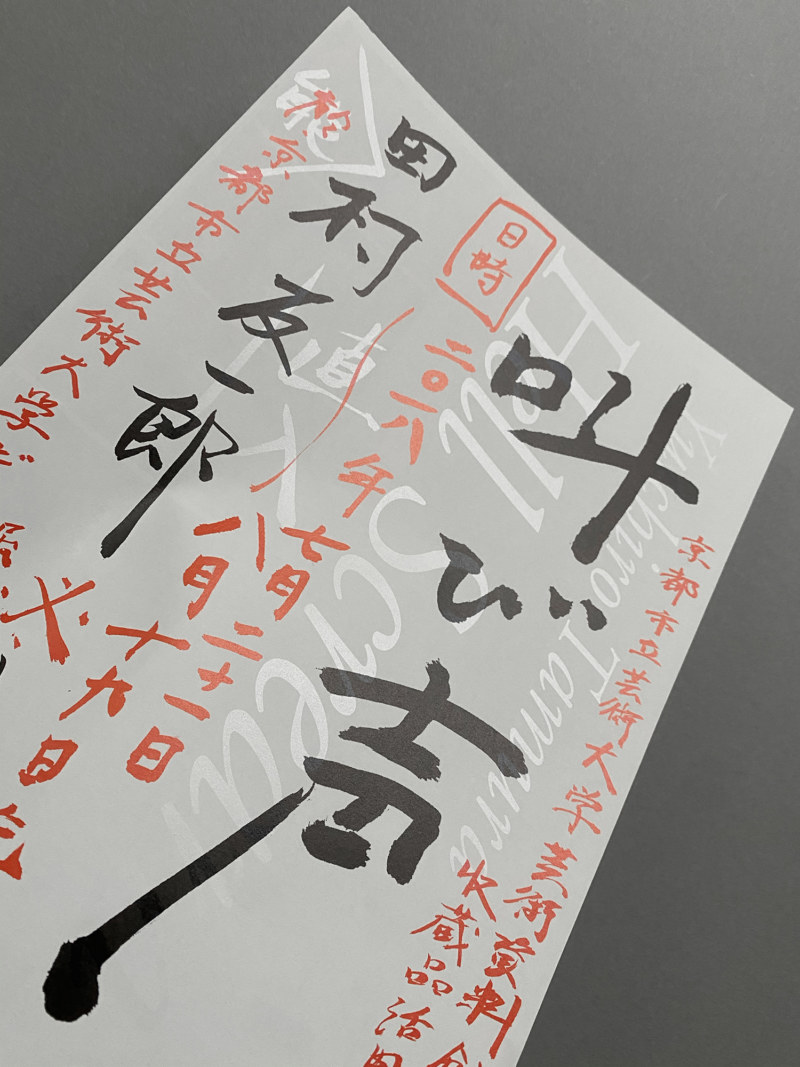 京都市立芸術大学芸術資料
収蔵品活用
叫び声
Yuichiro Tamura
Hell Scream
日時
二〇一八年
七月二十一日
八月十九日
田村友一郎
京都市立芸術大学